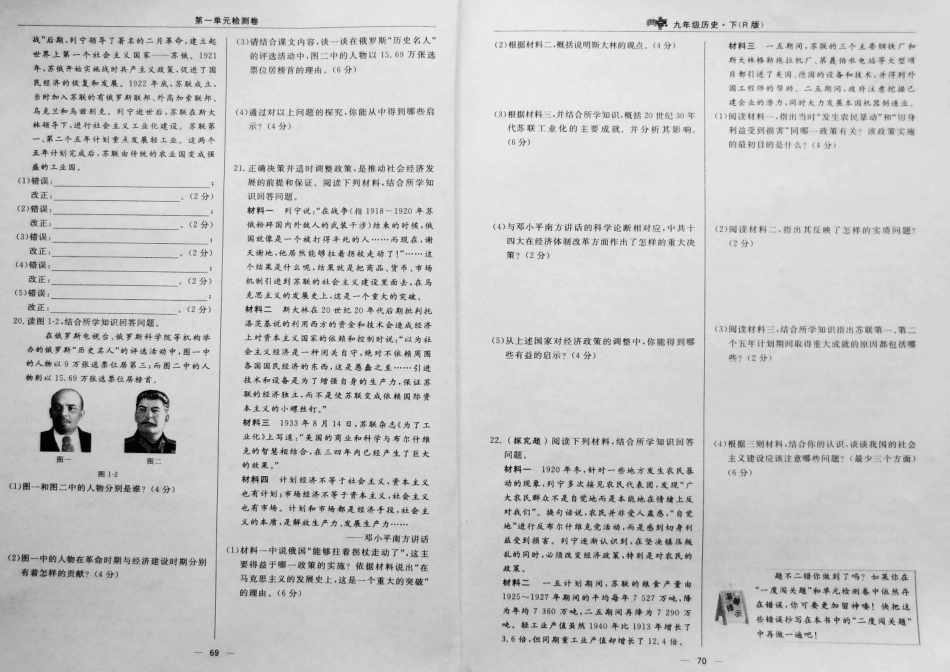 第一单元检测卷
战”后期,列宁领导了著名的二月革命,建立起
世界上第一个社会主义国家——苏俄。1921
年,苏俄开始实施战时共产主义政策,促进了国
民经济的恢复和发展。1922 年底,苏联成立,
当时加入苏联的有俄罗斯联邦、外高加索联邦、
乌克兰和乌兹别克。列宁逝世后,苏联在斯大
林领导下,进行社会主义工业化建设。苏联第
一、第二个五年计划重点发展轻工业。这两个
五年计划完成后,苏联由传统的农业国变成强
盛的工业国。
(1)错误:;
改正:。(2 分)
(2)错误:;
改正:。(2 分)
(3)错误:;
改正:。(2 分)
(4)错误:;
改正:。(2 分)
(5)错误:;
改正:。(2 分)
20. 读图 1-2,结合所学知识回答问题。
在俄罗斯电视台、俄罗斯科学院等机构举
办的俄罗斯“历史名人”的评选活动中,图一中
的人物以 9 万张选票位居第三;而图二中的人
物则以 15.69 万张选票位居榜首。
图一 图二
图 1-2
(1)图一和图二中的人物分别是谁? (4 分)
(2)图一中的人物在革命时期与经济建设时期分别
有着怎样的贡献? (4 分)
(3)请结合课文内容,谈一谈在俄罗斯“历史名人”
的评选活动中,图二中的人物以 15.69 万张选
票位居榜首的理由。(6 分)
(4)通过对以上问题的探究,你能从中得到哪些启
示? (4 分)
21. 正确决策并适时调整政策,是推动社会经济发
展的前提和保证。阅读下列材料,结合所学知
识回答问题。
材料一 列宁说:“在战争(指 1918—1920 年苏
俄粉碎国内外敌人的武装干涉)结束的时候,俄
国就像是一个被打得半死的人……而现在,谢
天谢地,他居然能够拄着拐杖走动了!”……这
个结果是什么呢,结果就是把商品、货币、市场
机制引进到苏联的社会主义建设里面去,在马
克思主义的发展史上,这是一个重大的突破。
材料二 斯大林在 20 世纪 20 年代后期批判托
洛茨基说的利用西方的资金和技术会造成经济
上对资本主义国家的依赖和控制时说:“以为社
会主义经济是一种闭关自守,绝对不依赖周围
各国国民经济的东西,这是愚蠢之至……引进
技术和设备是为了增强自身的生产力,保证苏
联的经济独立,而不是使苏联变成依赖国际资
本主义的小螺丝钉。”
材料三 1933 年 8 月 14 日,苏联杂志《为了工
业化》上写道:“美国的商业和科学与布尔什维
克的智慧相结合,在三四年内已经产生了巨大
的效果。”
材料四 计划经济不等于社会主义,资本主义
也有计划;市场经济不等于资本主义,社会主义
也有市场。计划和市场都是经济手段,社会主
义的本质,是解放生产力、发展生产力……
——邓小平南方讲话
(1)材料一中说俄国“能够拄着拐杖走动了”,这主
要得益于哪一政策的实施? 依据材料说出“在
马克思主义的发展史上,这是一个重大的突破”
的理由。(6 分)
— 69 —
九年级历史·下(R 版)
(2)根据材料二,概括说明斯大林的观点。(4 分)
(3)根据材料三,并结合所学知识,概括 20 世纪 30 年
代苏联工业化的主要成就。并分析其影响。
(6 分)
(4)与邓小平南方讲话的科学论断相对应,中共十
四大在经济体制改革方面作出了怎样的重大决
策? (2 分)
(5)从上述国家对经济政策的调整中,你能得到哪
些有益的启示? (4 分)
22. (探究题)阅读下列材料,结合所学知识回答
问题。
材料一 1920 年冬,针对一些地方发生农民暴
动的现象,列宁多次接见农民代表团,发现“广
大农民群众不是自觉地而是本能地在情绪上反
对我们”。换句话说,农民并非受人蛊惑,“自觉
地”进行反布尔什维克党活动,而是感到切身利
益受到损害。列宁逐渐认识到,在坚决镇压叛
乱的同时,必须改变经济政策,特别是对农民的
政策。
材料二 一五计划期间,苏联的粮食产量由
1925~1927 年期间的平均每年 7 527 万吨,降
为年均 7 360 万吨,二五期间再降为 7 290 万
吨。轻工业产值虽然 1940 年比 1913 年增长了
3.6 倍,但同期重工业产值却增长了 12.4 倍。
材料三 一五期间,苏联的三个主要钢铁厂和
斯大林格勒拖拉机厂、第聂伯水电站等大型项
目都引进了美国、德国的设备和技术,并得到外
国工程师的帮助。二五期间,政府注意挖掘已
建企业的潜力,同时大力发展本国机器制造业。
(1)阅读材料一,指出当时“发生农民暴动”和“切身
利益受到损害”同哪一政策有关? 该政策实施
的最初目的是什么? (4 分)
(2)阅读材料二,指出其反映了怎样的实质问题?
(2 分)
(3)阅读材料三,结合所学知识指出苏联第一、第二
个五年计划期间取得重大成就的原因都包括哪
些? (4 分)
(4)根据三则材料,结合你的认识,谈谈我国的社会
主义建设应该注意哪些问题? (最少三个方面)
(6 分)
温馨提示
题不二错你做到了吗? 如果你在
“一度闯关题”和单元检测卷中依然存
在错误,你可要更加留神喽! 快把这
些错误抄写在本书中的“二度闯关题”
中再做一遍吧!
— 70 —